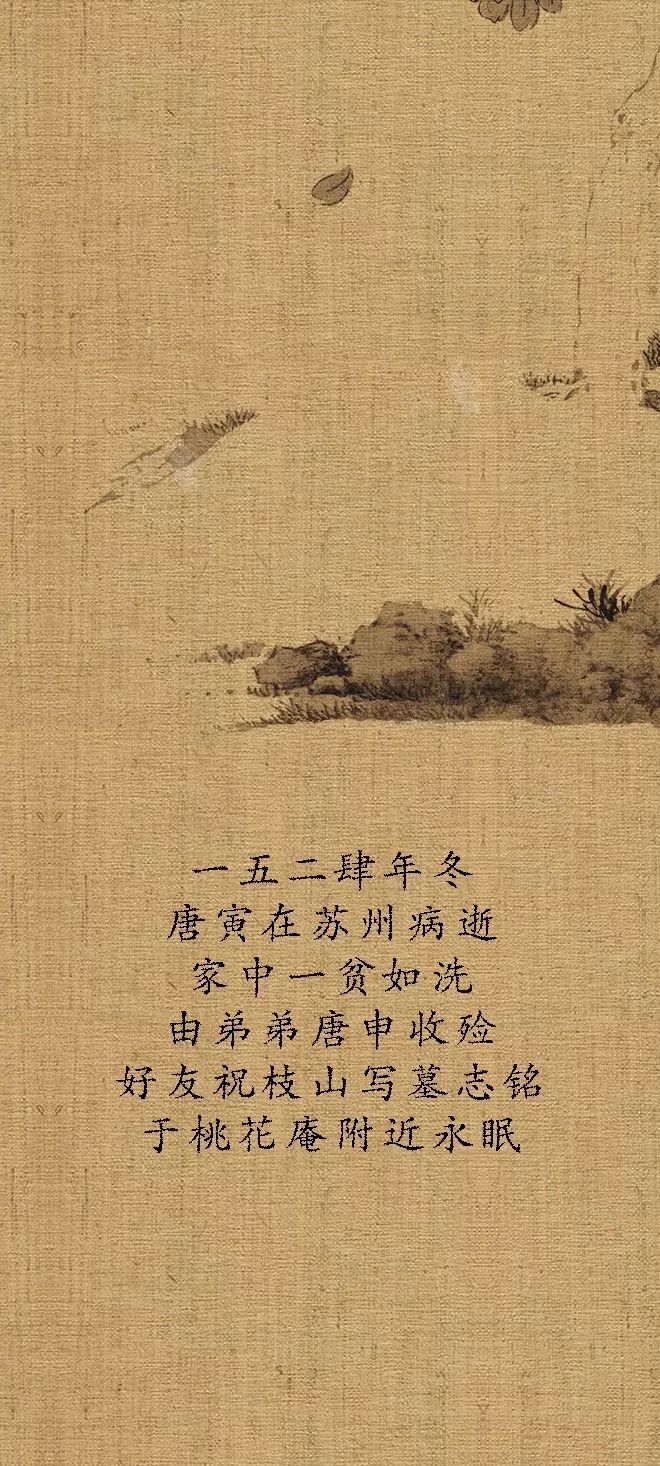 一五二肆年冬
唐寅在苏州病逝
家中一贫如洗
由弟弟唐申收殓
好友祝枝山写墓志铭
于桃花庵附近永眠